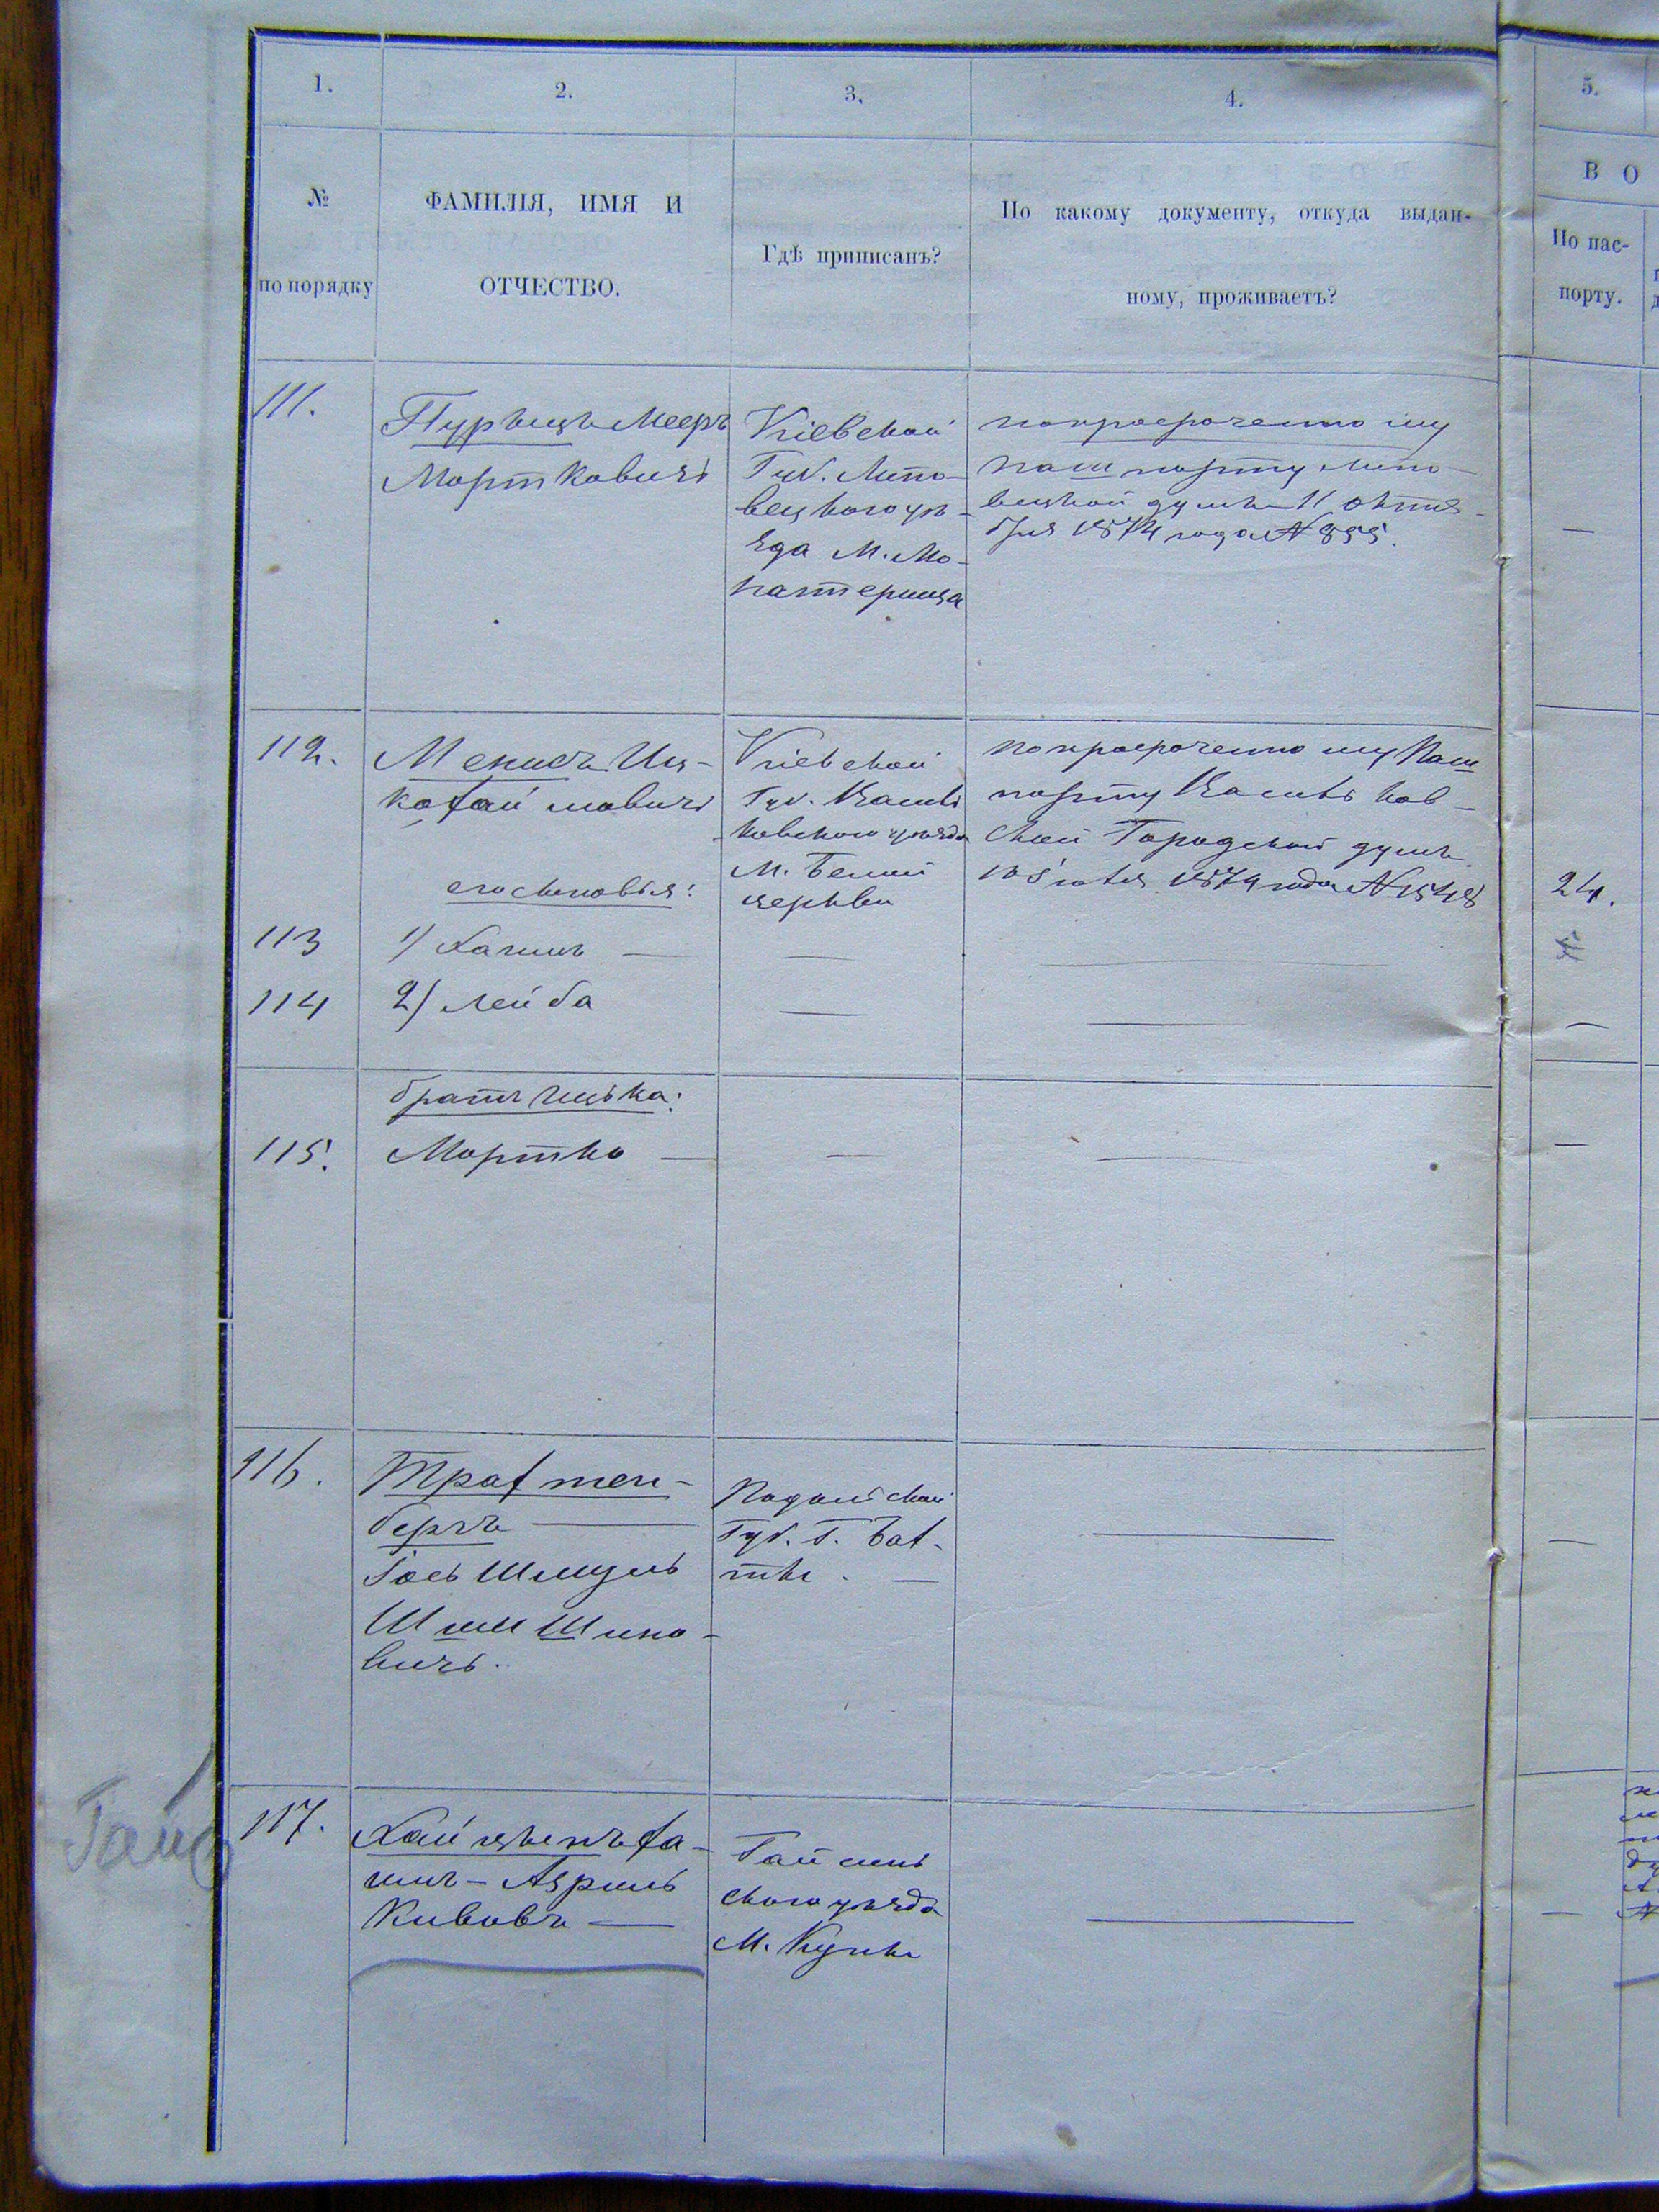 1.
2.
3.
4.
5.
№
по порядку
ФАМИЛІЯ, ИМЯ И
ОТЧЕСТВО.
Гдѣ приписанъ?
По какому документу, откуда выдан-
ному, проживаетъ?
В О
По пас-
порту.
111.
Пурыцъ Мееръ
Мортковичъ
Кіевской
Губ. Липо-
вецкого уѣ-
зда М. Мо-
настерища
по просроченному
паш порту Липо-
вецкой думы 11 октя-
бря 1874 года № 855.
—
112.
Мекисъ Иц-
ко Хаймовичъ
Кіевской
Губ. Василь
ковского уѣзда
М. Белой
церкви
по просроченному паш
порту Васильков-
ской Городской думы
1874 года № 1548
24.
его сыновья:
113
1) Хаимъ —
—
—
114
2) Лейба
—
—
—
братъ Ицька:
115.
Мортко —
—
—
—
116.
Трахтен-
бергъ —
Іось Шмуль
Шимшино-
вичъ.
Подольской
Губ. Г. Бал-
ты. —
—
—
Гайс
117.
Хаи
имъ - Аврумъ
Кивовъ —
Гайсин
ского уѣзда
М. Куны
—
—